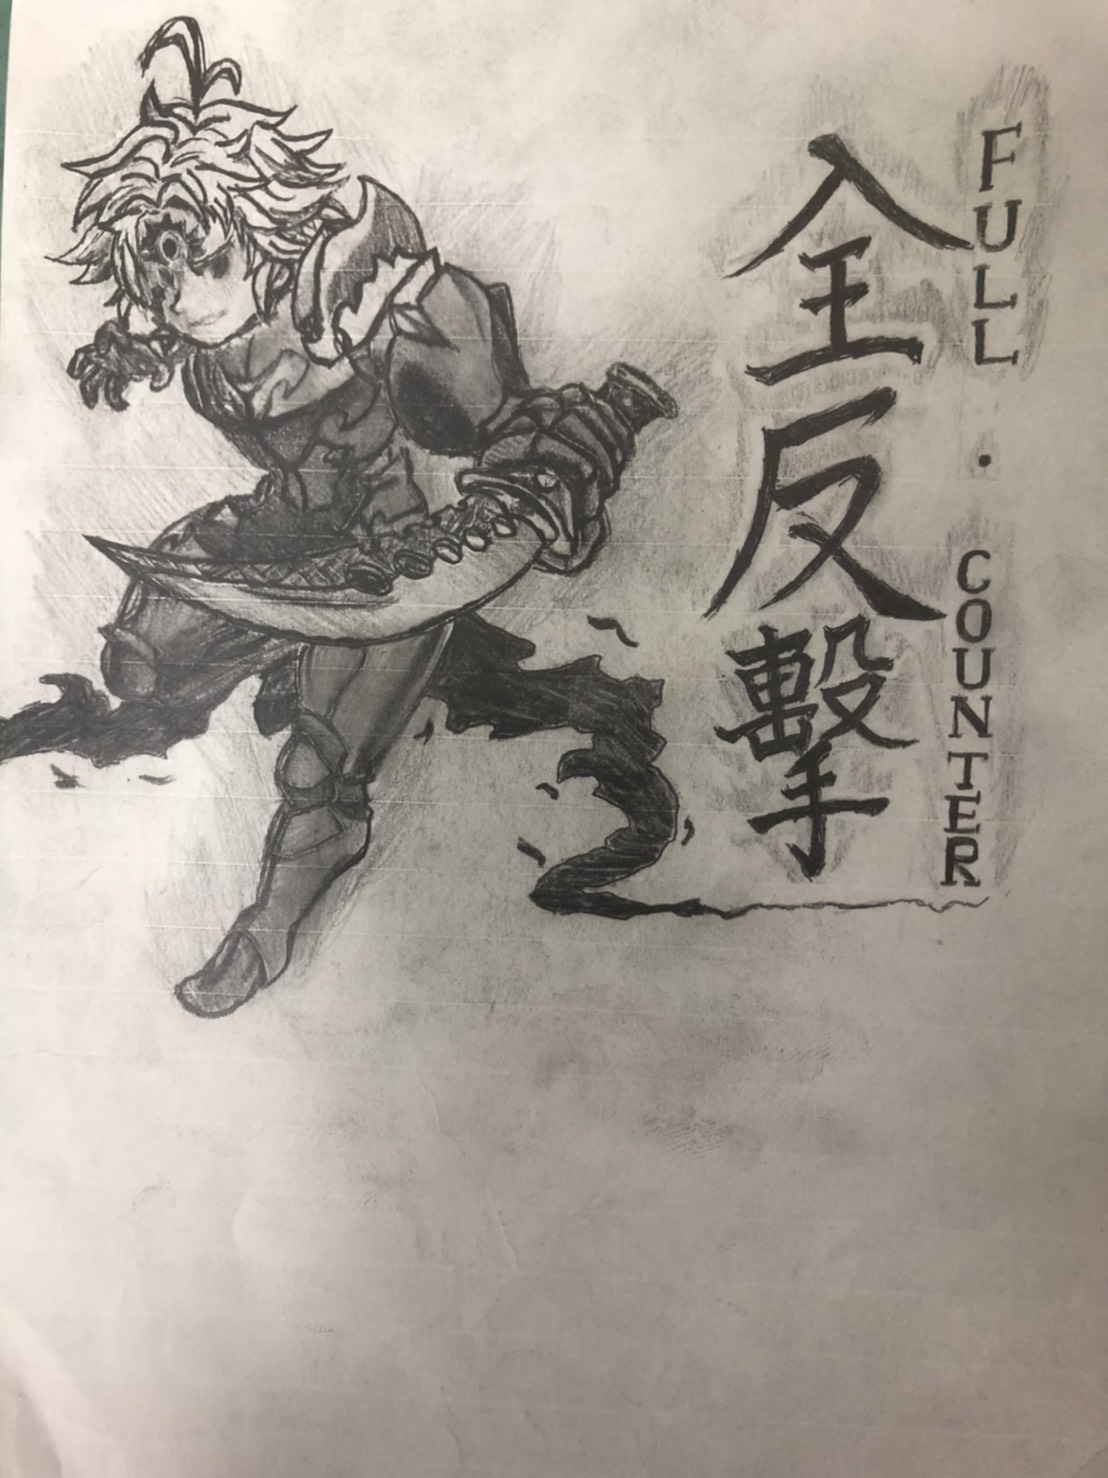 全反擊
FULL・COUNTER